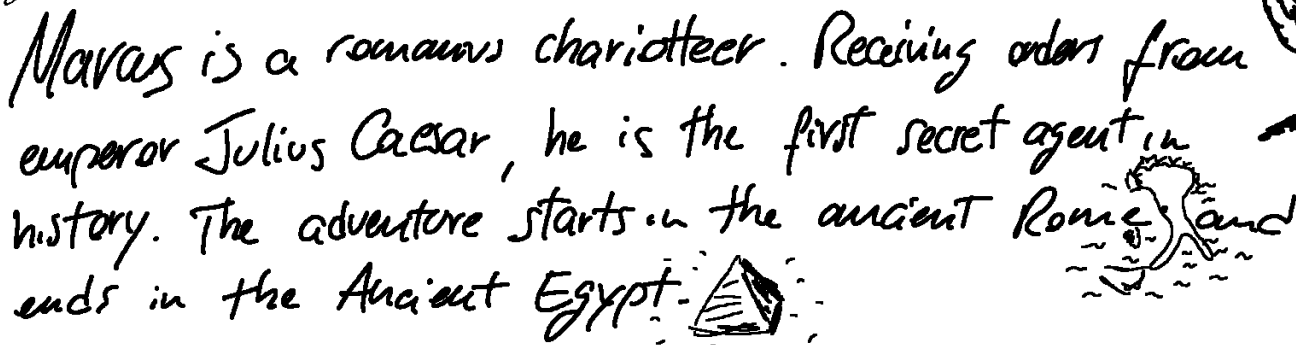 Marcus is a romanus chariotteer. Receiving orders from
emperor Julius Caesar, he is the first secret agent in
history. The adventure starts in the ancient Rome and
ends in the Ancient Egypt.